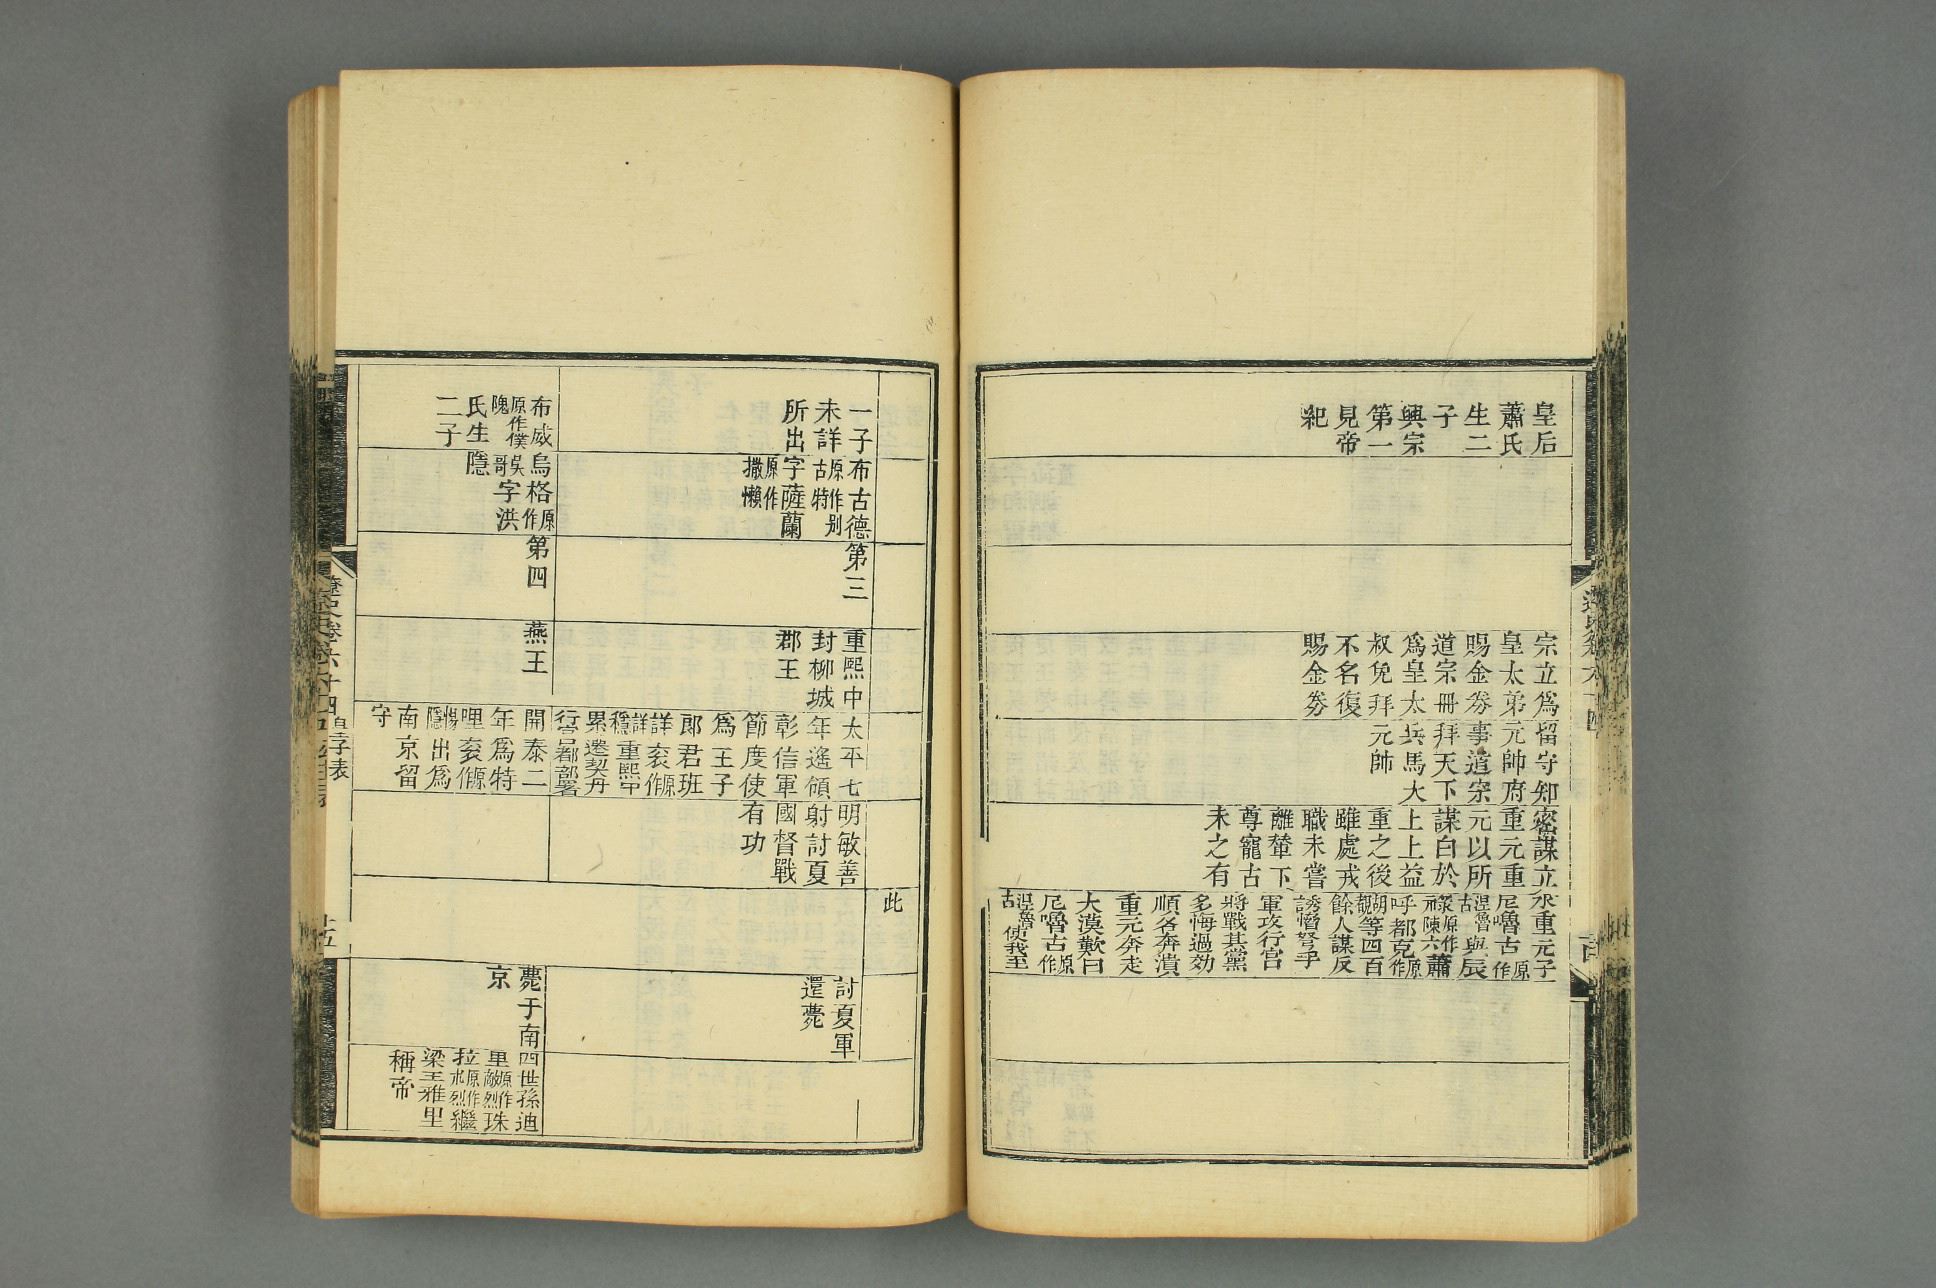 皇后
蕭氏
生二
子
興宗
第一
見帝
紀
宗立爲
皇太弟
賜金券
道宗冊
爲皇太
叔免拜
不名復
賜金券
留守知
元帥府
事道宗
拜天下
兵馬大
元帥
密謀立
重元重
元以所
謀白於
上上益
重之後
雖處戎
職未嘗
離輦下
尊寵古
未之有
永重元子
尼嚕古原作
涅魯古與辰
祿原作陳六蕭
呼都克原作
胡覩等四百
餘人謀反
誘脅弩手
軍攻行宮
將戰其黨
多悔過効
順各奔潰
重元奔走
大漠歎曰
尼嚕古原作
涅魯古使我至
此
一子
未詳
所出
布古德
原作别古特
字薩蘭
原作撒懶
第三
重熙中
封柳城
郡王
太平七
年遙領
彰信軍
節度使
爲王子
郎君班
詳衮原作
詳穩重熙中
累遷契丹
行宮都部署
明敏善
射討夏
國督戰
有功
討夏軍
還薨
布威
原作僕隗
氏生
二子
烏格原作
吳哥字洪
隱
第四
燕王
開泰二
年爲特
哩衮原作
惕隱出爲
南京留
守
薨于南
京
四世孫迪
里原作敵烈珠
拉原作朮烈繼
梁王雅里
稱帝
遼史卷六十四 皇子表
十五